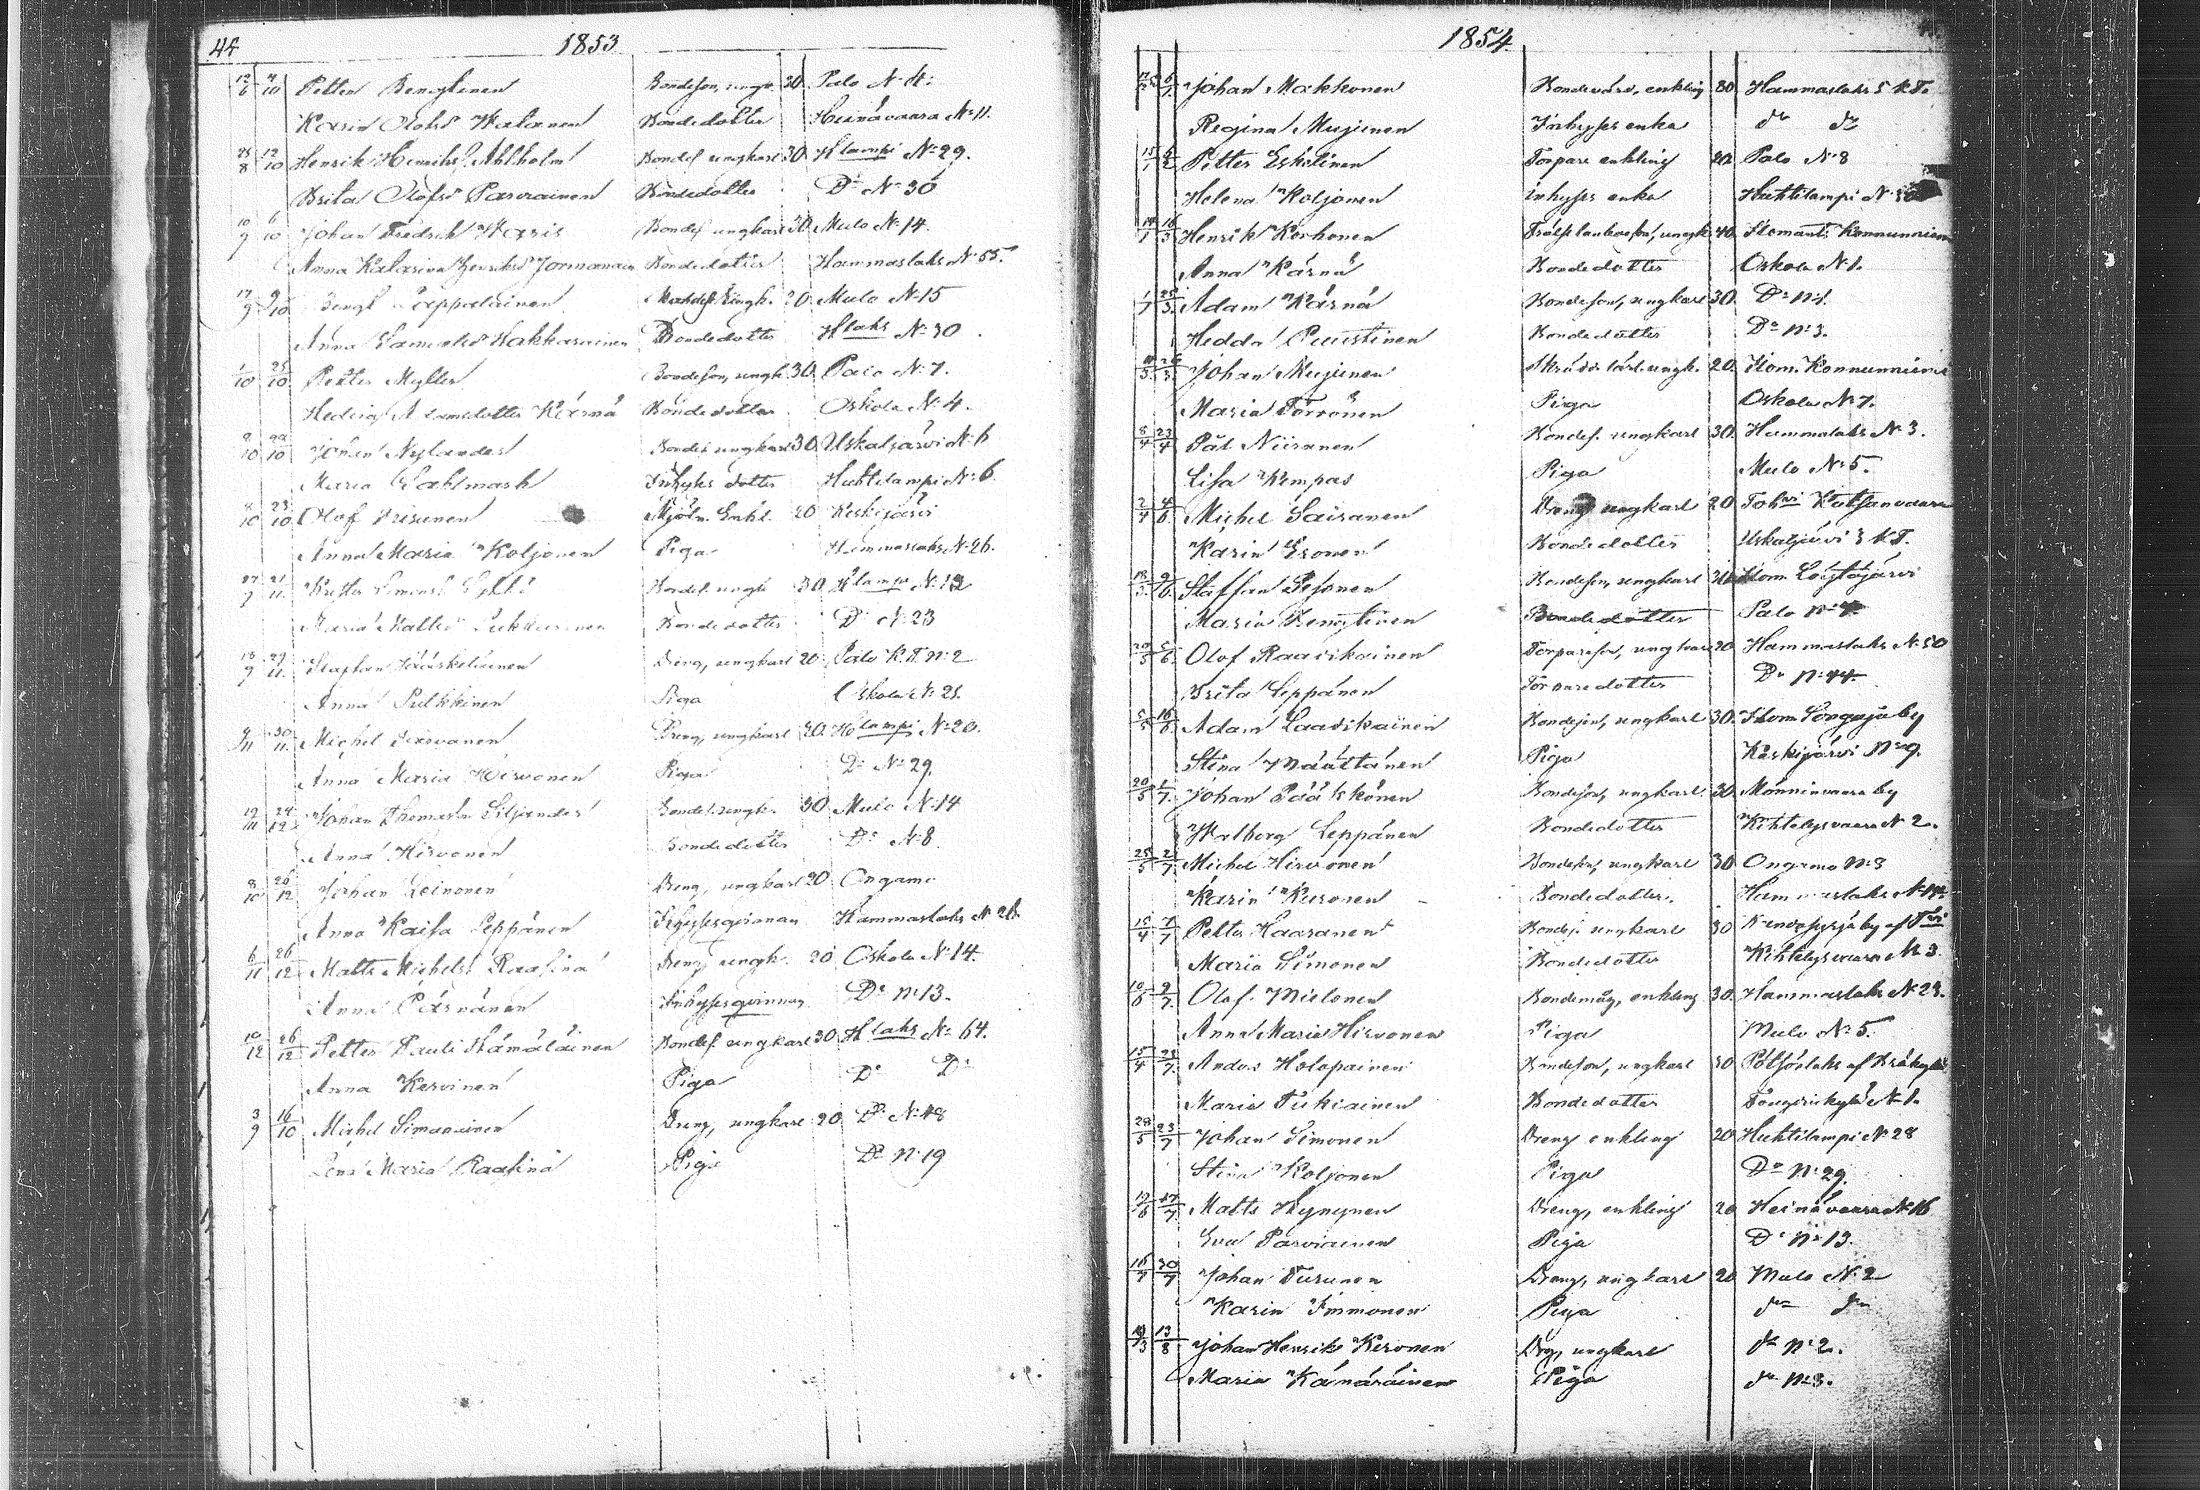 44 1853
12/6 4/10 Petter Bengtinen Bondeson, ungk. 30 Palo N 4.
Karin Olofsd Halanen Bondedotter Heinävaara N 11.
28/8 12/10 Henrik Henriks. Ahlholm Bondes. ungkarl 30 Hlampi No 29.
Brita Olofsd Parviainen Bondedotter Do No 30
10/9 6/10 Johan Fredrik Waris Bondes ungkarl 30 Mulo No 14.
Anna Katarina Henriksd Jormanain Bondedotter Hammaslaks No 55.
17/9 9/10 Bengt Lappalainen ungk. 20 Mulo No 15
Anna Samuelsd Hakkarainen Bondedotter Hlaks No 30.
1/10 25/10 Petter Myller Bondeson, ungk. 30 Palo No 7.
Hedvig Adamsdotter Kärnä Bondedotter Oskola No 4.
9/10 29/10 Johan Nylander Bondes ungkarl 30 Uskaljärvi No 6
Maria Lahlmark Inhyses dotter Huhtilampi No 6.
8/10 23/10 Olof Irisunen Mjöln. Enkl. 20 Keskijärvi
Anna Maria Koljonen Piga Hammaslaks No 26.
27/9 21/11 Simons. Bondes. ungk 30 Hlampi No 12
Maria Mattsd Bondedotter Do No 23
18/9 29/11 Staffan Jääskeläinen Dreng, ungkarl 20 Palo K.T. No 2
Anna Pulkkinen Piga Oskola No 21.
9/11 30/11 Michel Dreng, ungkarl 20 Hlampi No 20.
Anna Maria Hirvonen Piga Do No 29.
19/11 24/12 Johan Thomasson Liljander Bondes. ungk. 30 Mulo No 14
Anna Hirvonen Bondedotter Do No 8.
8/10 26/12 Johan Leinonen Dreng, ungkarl 20 Ongamo
Anna Kaisa Leppänen Inhysesqvinnan Hammaslaks No 26.
6/11 26/12 Matts Michelss. Raasinä Dreng ungk. 20 Oskola No 14.
Anna Pärnänen Inhysesqvinnan Do No 13.
10/12 26/12 Petter Pauli Hämäläinen Bondes. ungkarl 30 Hlaks No 64.
Anna Kervinen Piga Do Do
3/9 16/10 Michel Simanainen Dreng, ungkarl 20 Do No 48
Lena Maria Raasinä Piga Do No 19
1854
Johan Makkonen Bondevärd, enkling 30 Hammaslaks 5 K.T.
Regina Mujunen Inhyses enka do do
15/1 5/2 Petter Eskelinen Torpare enkling 20 Palo No 8
Helena Koljonen Inhyses enka Huhtilampi No 30
14/1 16/3 Henrik Korhonen ungk 40 Ilomants Konnunniemi
Anna Kärnä Bondedotter Oskola No 1.
1/7 25/3 Adam Kärnä Bondeson, ungkarl 30 Do No 1.
Hedda Puustinen Bondedotter Do No 3.
Johan Mujunen Skräddarl. ungk. 20. Ilom. Konnunniemi
Maria Torronen Piga Oskola No 7.
8/4 23/4 Pål Niiranen Bondes. ungkarl 30 Hammaslaks No 3.
Lisa Kempas Piga Mulo No 5.
2/4 4/6 Michel Sairanen Dreng ungkarl 20 Tohvi Kutsunvaara
Karin Eronen Bondedotter Uskaljärvi 3 K.T.
Staffan Pesonen Bondeson, ungkarl Ilom. Löytöjärvi
Maria Bengtinen Bondedotter Palo No 4.
Olof Raavikainen Torpareson, ungkarl 20 Hammaslaks No 50
Brita Leppänen Torparedotter Do No 44.
5/5 16/6 Adam Laavikainen Bondeson, ungkarl 30. Ilom Sonkaja by
Stina Määttänen Piga Keskijärvi No 9.
20/5 1/7 Johan Pääskönen Bondeson, ungkarl 30 Mönninvaara by
Walborg Leppänen Bondedotter Kihtelysvaara No 2.
25/5 2/7 Michel Hirvonen Bondeson, ungkarl 30 Ongamo No 3
Karin Kuronen Bondedotter. Hammaslaks
15/4 7/7 Petter Haaranen Bondes ungkarl 30 by af Tvi
Maria Simonen Bondedotter Kihtelysvaara No 3.
10/6 9/7 Olof Mielonen Bondemåg, enkling 30. Hammaslaks No 23.
Anna Maria Hirvonen Piga Mulo No 5.
15/4 23/7 Anders Holopainen Bondeson, ungkarl 30 Potsönlaks af Bräkylä
Maria Tukiainen Bondedotter No 1.
28/5 23/7 Johan Simonen Dreng enkling 20 Huhtilampi No 28
Stina Koljonen Piga Do No 29.
17/6 17/7 Matts Hynynen Dreng, enkling 20 Heinävaara No 16
Eva Parviainen Piga Do No 13.
16/7 30/7 Johan Turunen Dreng, ungkarl 20 Mulo No 2
Karin Immonen Piga do do
19/3 13/8 Johan Henrik Keronen Drg, ungkarl do No 2.
Maria Kämäräinen Piga do No 3.